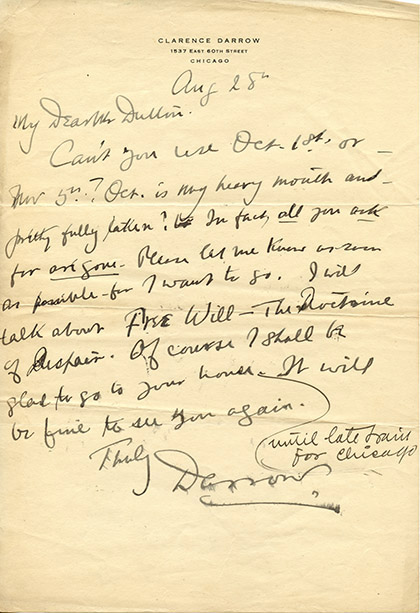 CLARENCE DARROW
1537 EAST 60TH STREET
CHICAGO
Aug 28th
My Dear Mr Dutton.
Can't you use Oct. 1st, or –
Nov 5th? Oct. is my heavy month and –
pretty fully taken? In fact, all you ask
for are gone. Please let me know as soon
as possible – for I want to go. I will
talk about Free Will – The Doctrine
of Despair. Of course I shall be
glad to go to your house – It will
be fine to see you again.
until late train
for Chicago
Truly
Darrow